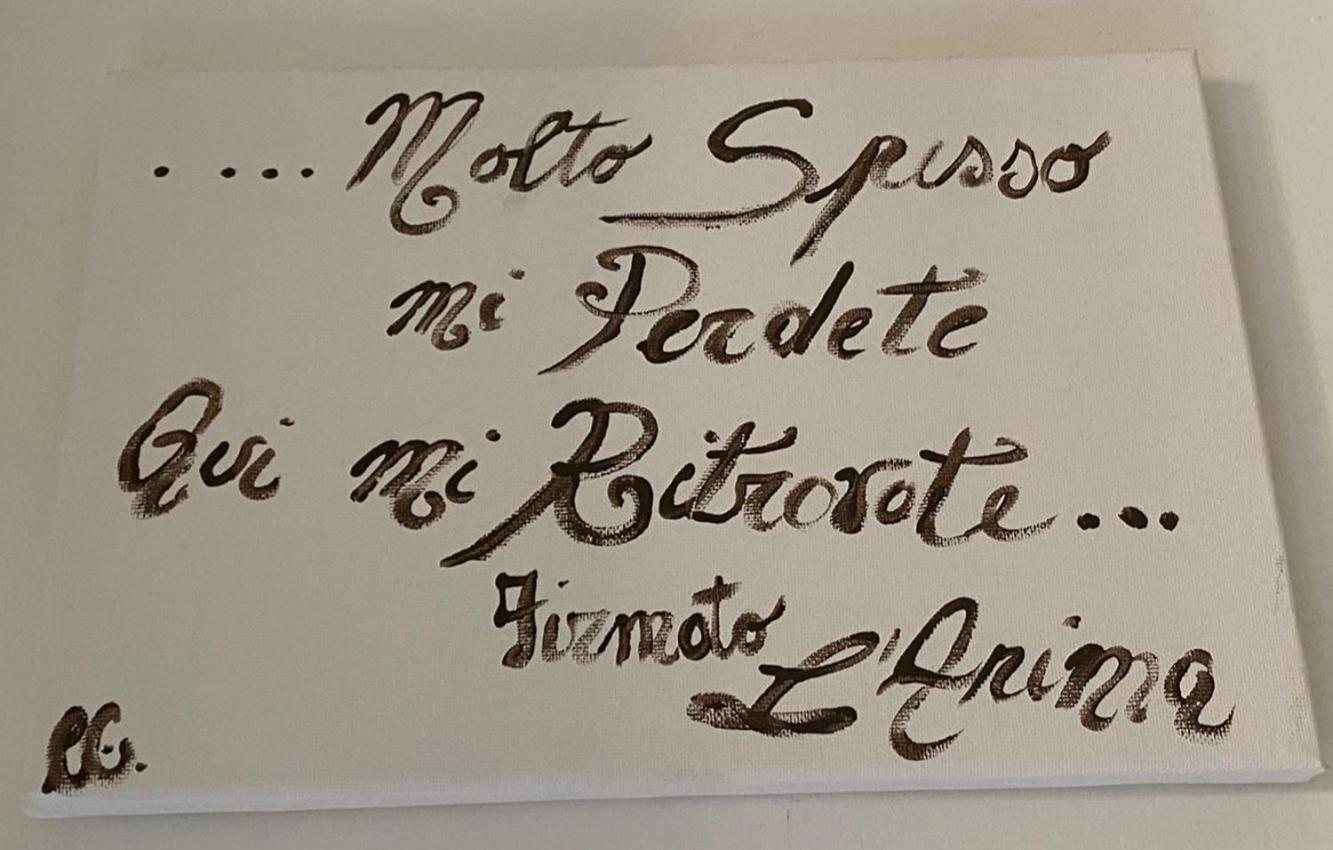 . ... Molto Spesso
mi Perdete
Qui mi Ritrovate...
Firmato
L'Anima